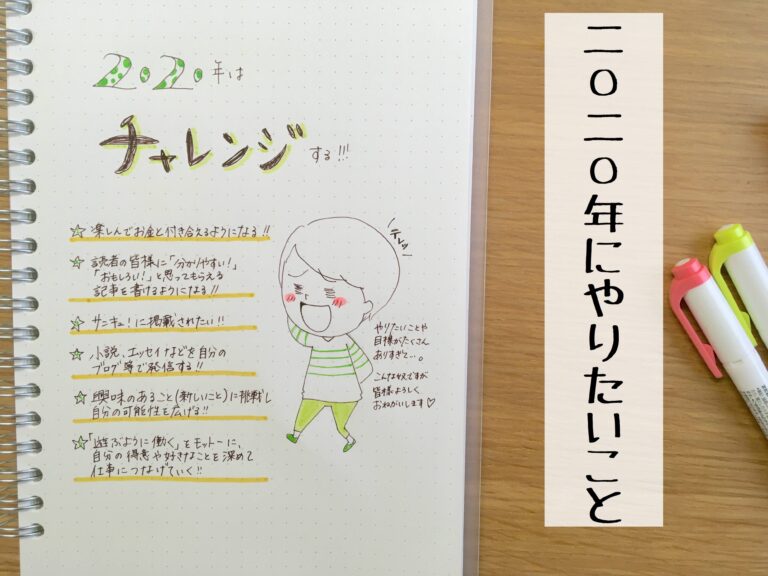 2020年は
チャレンジする!!!
☆ 楽しんでお金と付き合えるようになる!!
☆ 読者の皆様に「分かりやすい!」
「おもしろい!」と思ってもらえる
記事を書けるようになる!!
☆ サンキュ!に掲載されたい!!
☆ 小説、エッセイなどを自分の
ブログ等で発信する!!
☆ 興味のあること(新しいこと)に挑戦し
自分の可能性を広げる!!
☆ 「遊ぶように働く」をモットーに、
自分の得意や好きなことを深めて
仕事につなげていく!!
テレッ
やりたいことや
目標がたくさん
ありすぎて…。
こんな奴ですが
皆様よろしく
おねがいします♡
二〇二〇年にやりたいこと